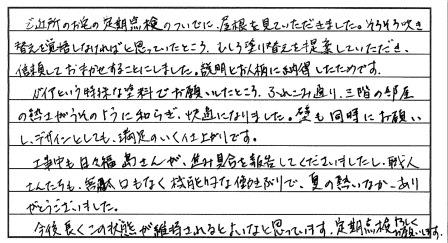 ご近所のお宅の定期点検のついでに、屋根を見ていただきました。そろそろ吹き
替えを覚悟しなければと思っていたところ、むしろ塗り替えを提案していただき、
信頼しておまかせすることにしました。説明とお人柄に納得したためです。
ガイナという特殊な塗料でお願いしたところ、ふれこみ通り、三階の部屋
の熱さがうそのように和らぎ、快適になりました。壁も同時にお願い
し、デザインとしても、満足のいく仕上がりです。
工事中も日々福島さんが、進み具合を報告してくださいましたし、職人
さんたちも、無駄口もなく技能的な働きぶりで、夏の熱いなか、あり
がとうございました。
今後長くこの状態が維持されるとよいなと思っています。定期点検よろしく
お願いします。